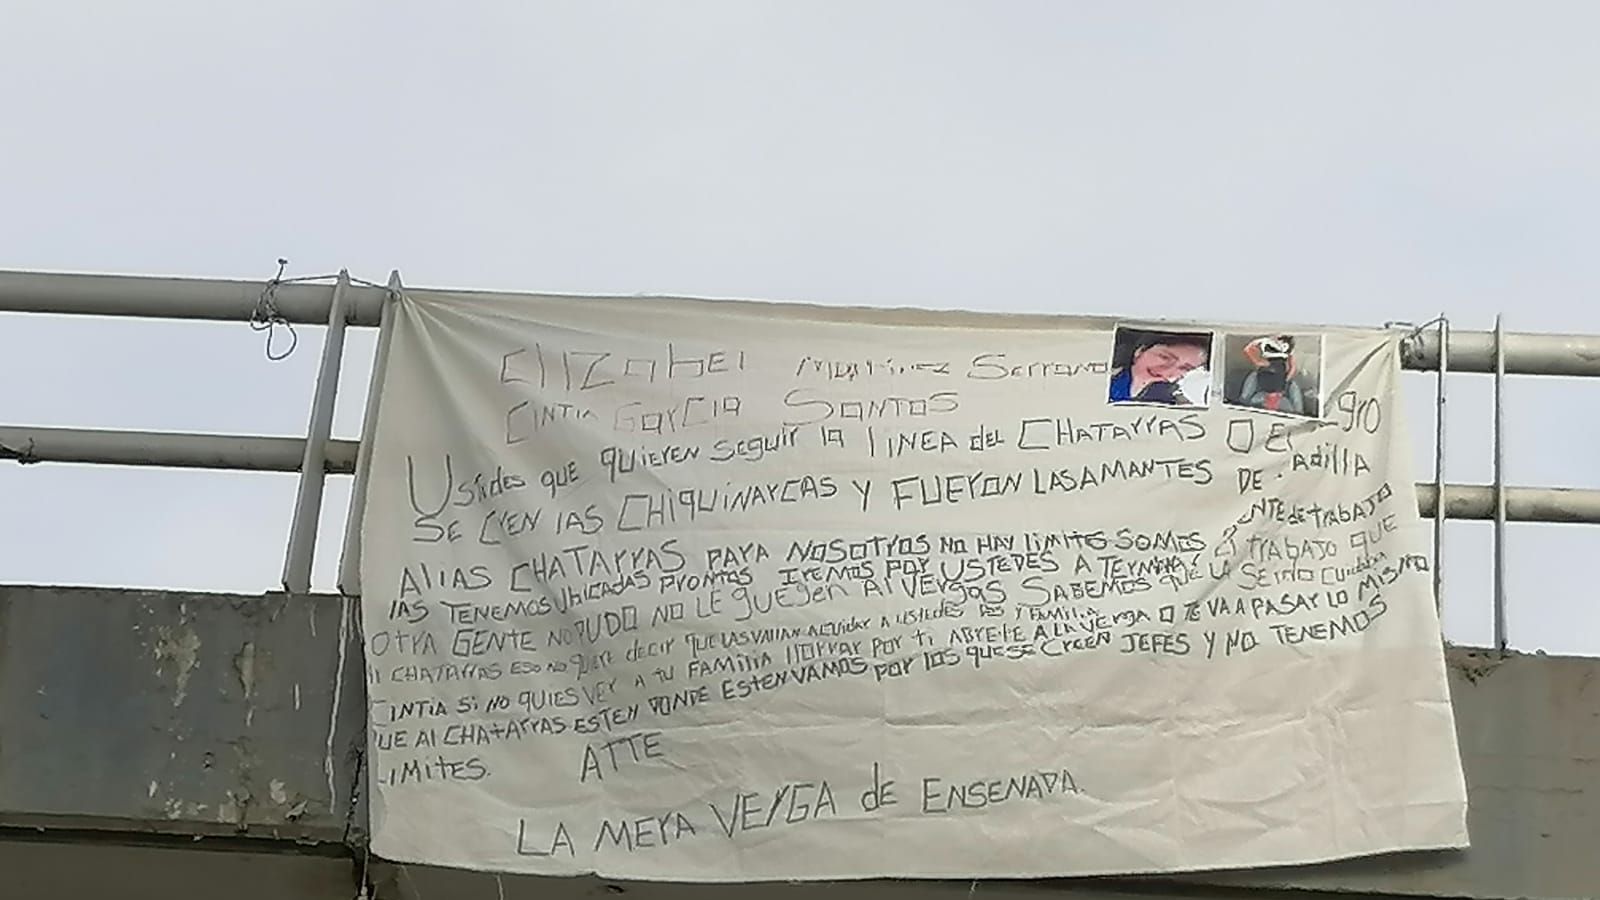 ElizabEl Martinez Serrano
CINTIA GarCIA SANTOS
Ustides que quieren seguir la linea del CHATARRAS DEL gro
SE CREN lAS CHIQUINARCAS Y FUERON LAS AMANTES DE adilla
Alias CHATARRAS PARA NOSOTROS NO HAY LIMITES SOMOS ENTE de TRABAJO
lAS TENEMOS UbICADAS PRONTAS IREMOS POR USTEDES A TERMINAR EL TRABAJO QUE
OTRA GENTE NO PUDO NO LE JUEJEN Al VERGAS SABEMOS QUE LA SEIDO
CHATARRAS ESO NO QUIERE decir QUE LAS VALLAN A CUIDAR A USTEDES DOS Y FAMILIA
CINTIA Si NO QUIES VER A TU FAMILIA llORRAR POR Ti ABRETE A LA VERGA O TE VA A PASAR LO MISMO
QUE Al CHATARRAS ESTEN DONDE ESTEN VAMOS POR lOS QUE SE CREEN JEFES Y NO TENEMOS
LIMITES.
ATTE
LA MERA VERGA dE ENSENADA.